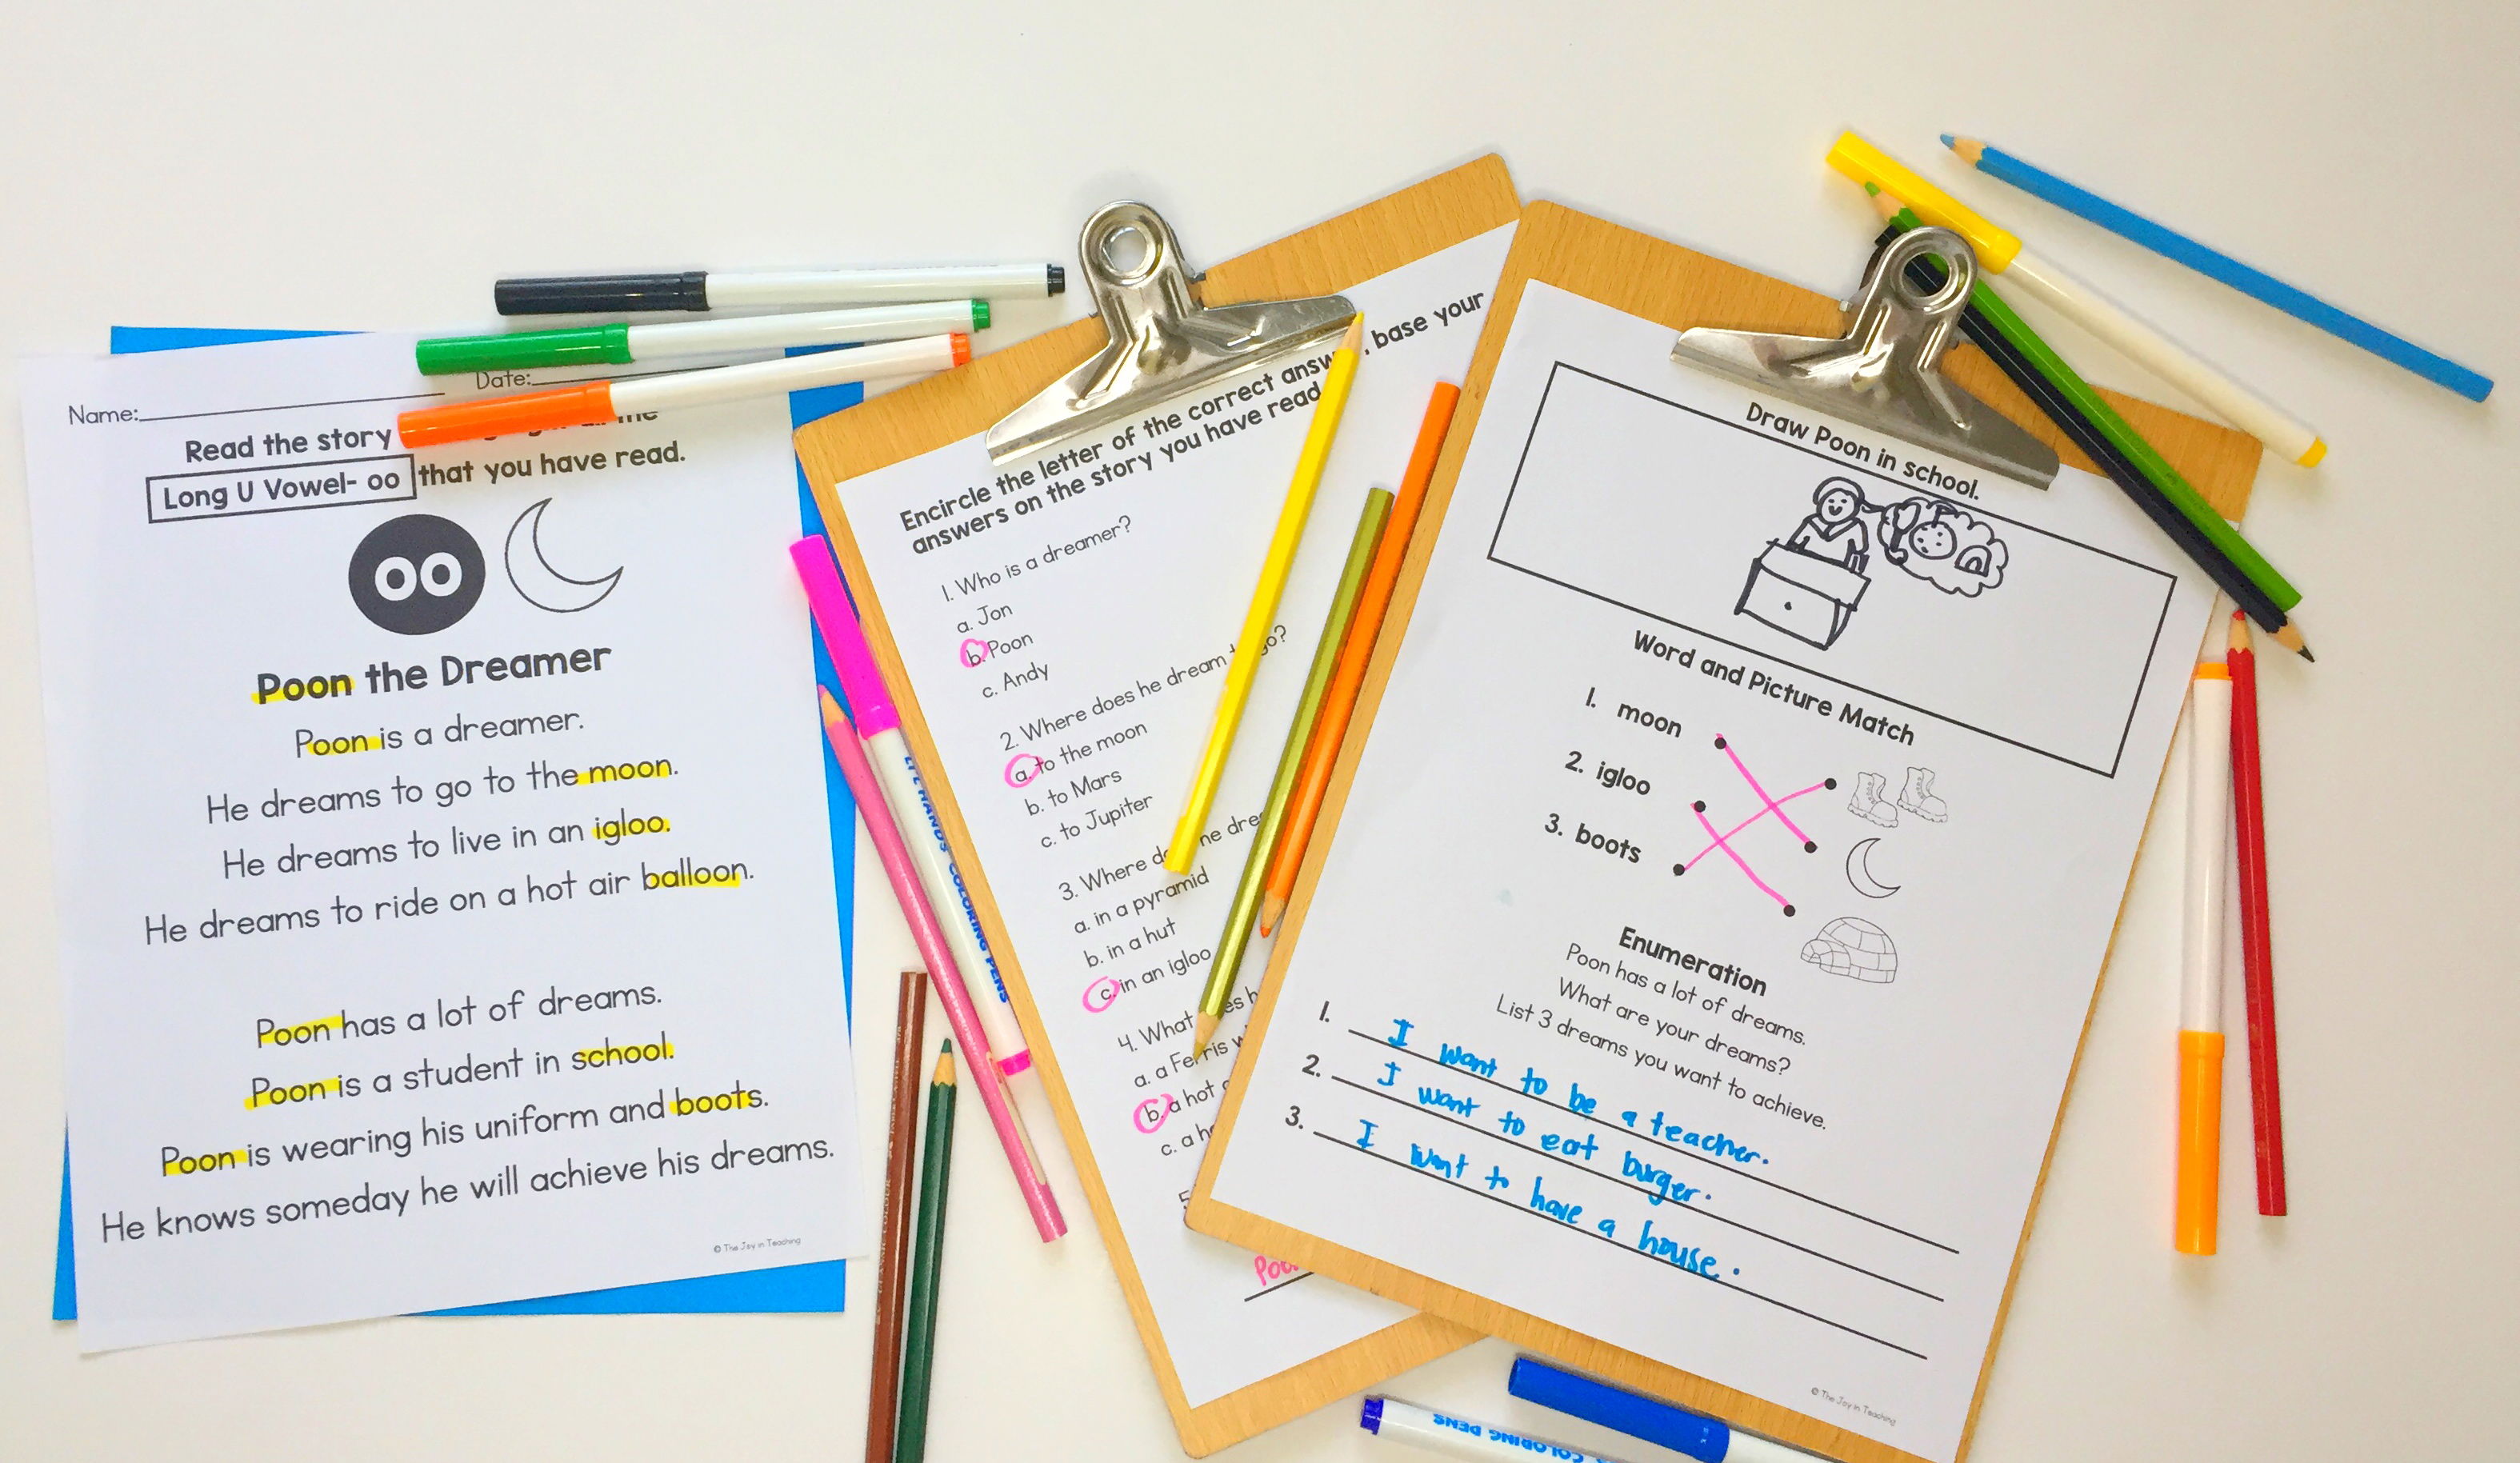 Name:
Date:
Read the story
Long U Vowel- oo that you have read.
oo
Poon the Dreamer
Poon is a dreamer.
He dreams to go to the moon.
He dreams to live in an igloo.
He dreams to ride on a hot air balloon.
Poon has a lot of dreams.
Poon is a student in school.
Poon is wearing his uniform and boots.
He knows someday he will achieve his dreams.
© The Joy in Teaching
COLORING PENS
Encircle the letter of the correct base your
answers on the story you have read
1. Who is a dreamer?
a. Jon
b. Poon
c. Andy
2. Where does he dream go?
a. to the moon
b. to Mars
c. to Jupiter
3. Where
a. in a pyramid
b. in a hut
c. in an igloo
4. What
a. a
b. a hot
c. a
5
Draw Poon in school.
Word and Picture Match
1. moon
2. igloo
3. boots
Enumeration
Poon has a lot of dreams.
What are your dreams?
List 3 dreams you want to achieve.
1. I want to be a teacher.
2. I want to eat burger.
3. I want to have a house.
© The Joy in Teaching
COLORING PENS